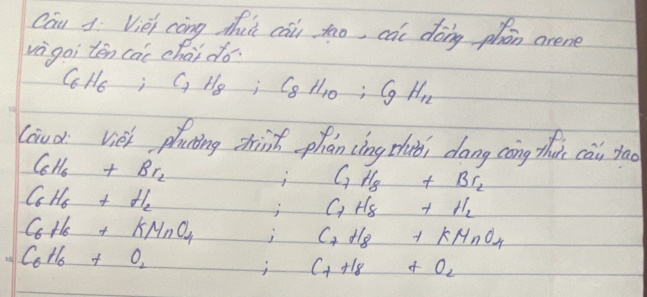 Câu 1: Viết công thức cấu tạo, các đồng phân arene
và gọi tên các chất đó:
C6H6 ; C7H8 ; C8H10 ; C9H12
Câu 2: Viết phương trình phản ứng dưới dạng công thức cấu tạo
C6H6 + Br2 ; C7H8 + Br2
C6H6 + H2 ; C7H8 + H2
C6H6 + KMnO4 ; C7H8 + KMnO4
C6H6 + O2 ; C7H8 + O2